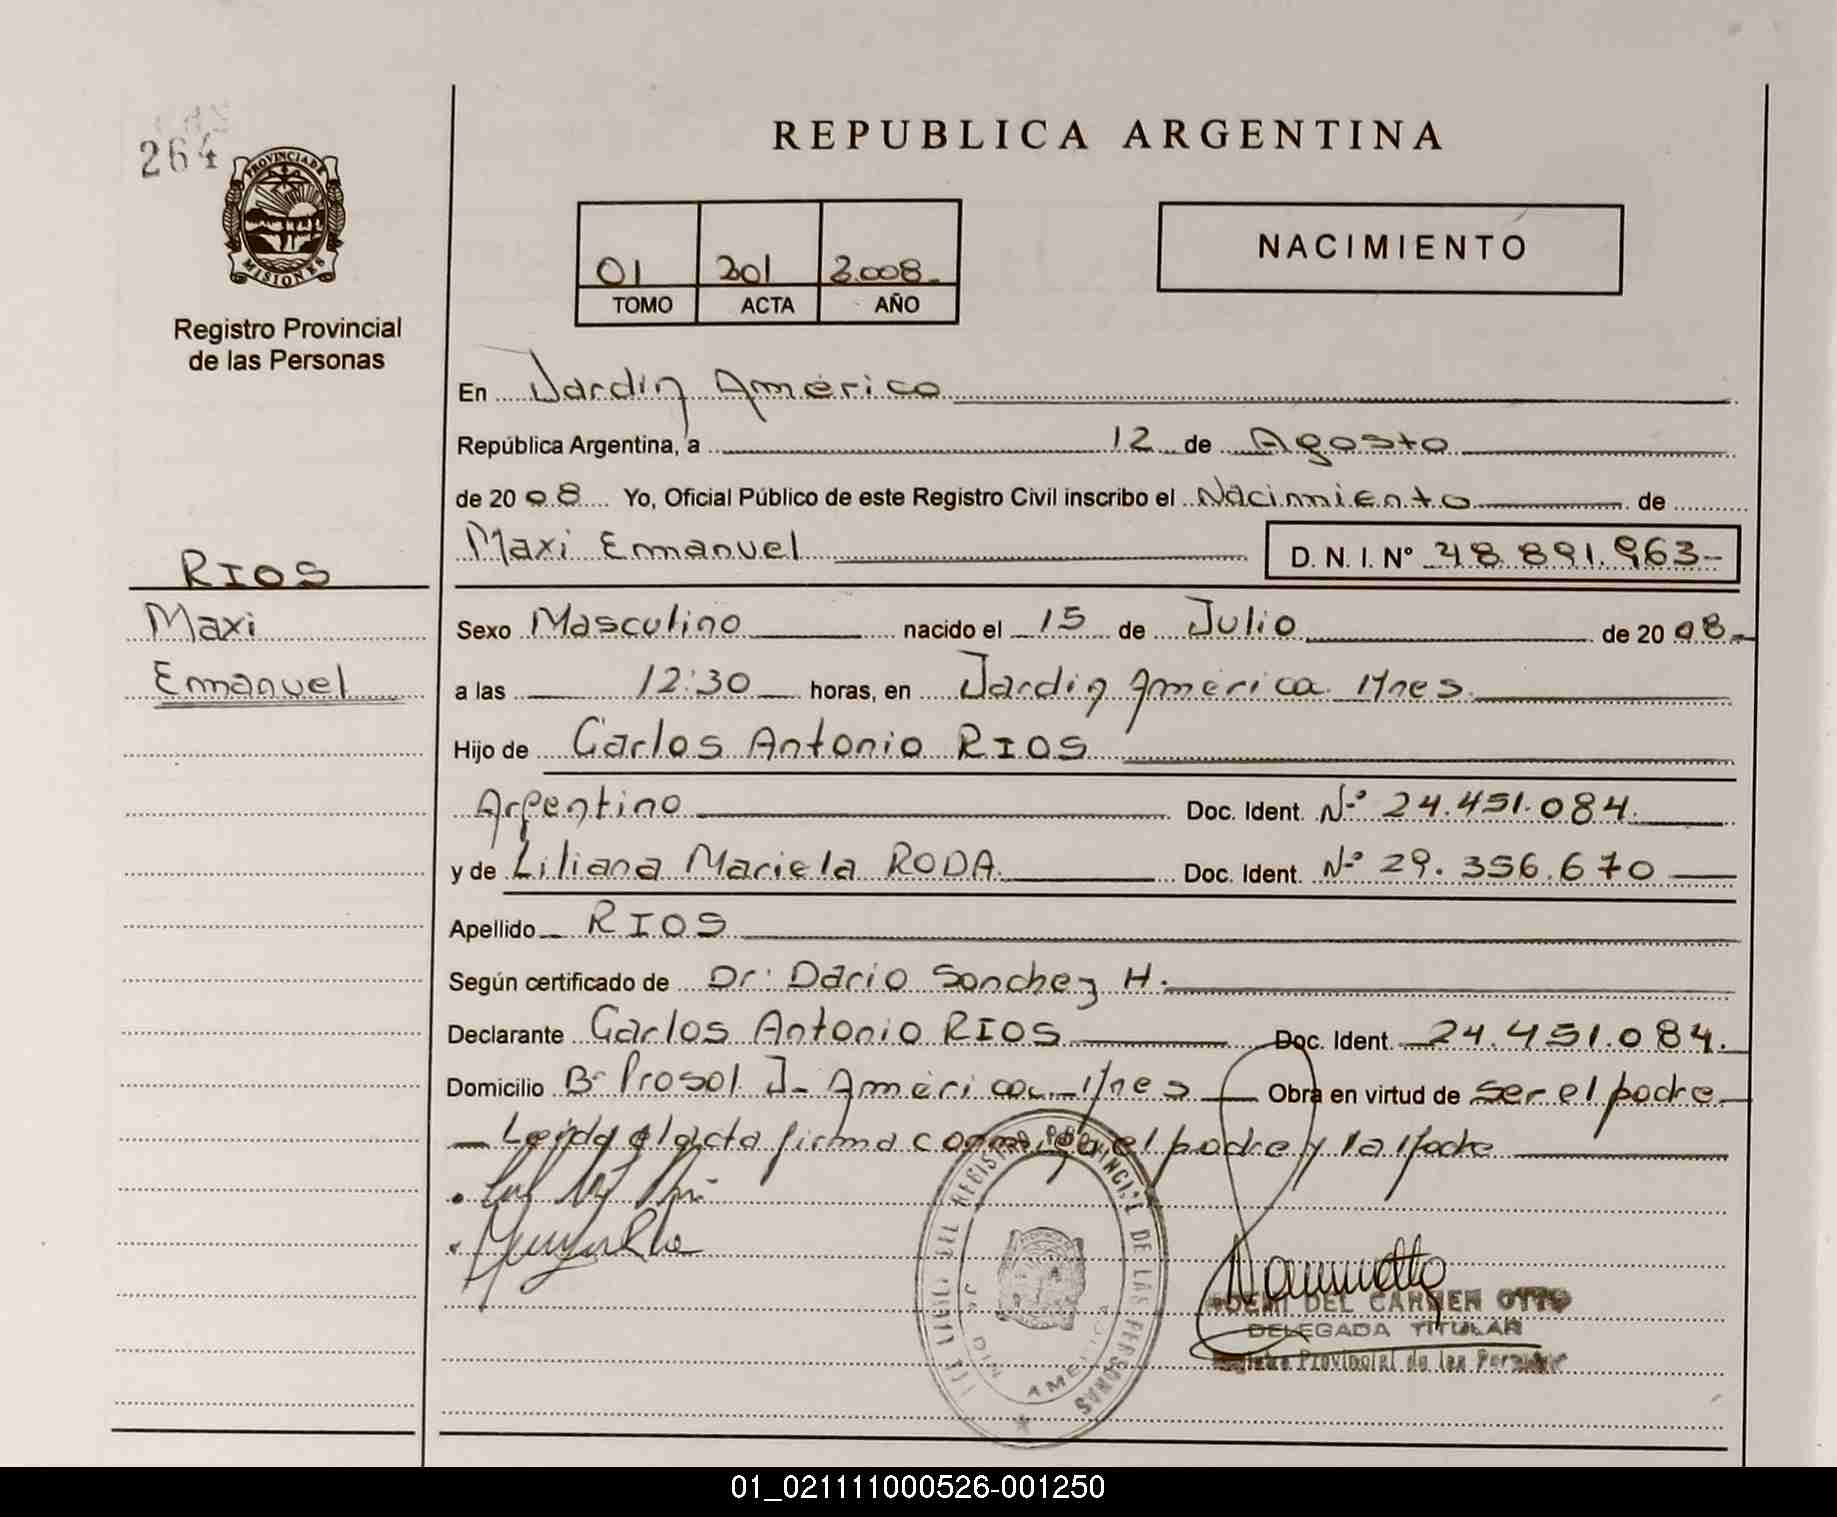 264
PROVINCIA DE
MISIONES
Registro Provincial
de las Personas
REPUBLICA ARGENTINA
01 201 2.008
TOMO ACTA AÑO
NACIMIENTO
En Jardín América
República Argentina, a 12 de Agosto
de 2008 Yo, Oficial Público de este Registro Civil inscribo el Nacimiento de
Maxi Emanuel D. N. I. N° 48.891.963-
RIOS
Maxi
Emanuel
Sexo Masculino nacido el 15 de Julio de 2008-
a las 12:30 horas, en Jardín América Mnes.
Hijo de Carlos Antonio RIOS
Argentino Doc. Ident. Nº 24.451.084.
y de Liliana Mariela RODA. Doc. Ident. Nº 29.356.670
Apellido RIOS
Según certificado de Dr: Dario Sanchez H.
Declarante Carlos Antonio RIOS Doc. Ident. 24.451.084.
Domicilio Bº Prosol J- América - Mnes Obra en virtud de ser el padre
Leída el acta firma conmigo el padre y la Madre
REGISTRO PROVINCIAL DE LAS PERSONAS
JARDIN AMERICA
DEL CARMEN OTTO
DELEGADA TITULAR
Registro Provincial de las Personas
01_021111000526-001250